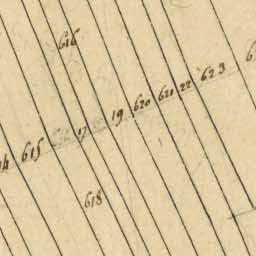 616
615 17 19 620 621 22 623
618